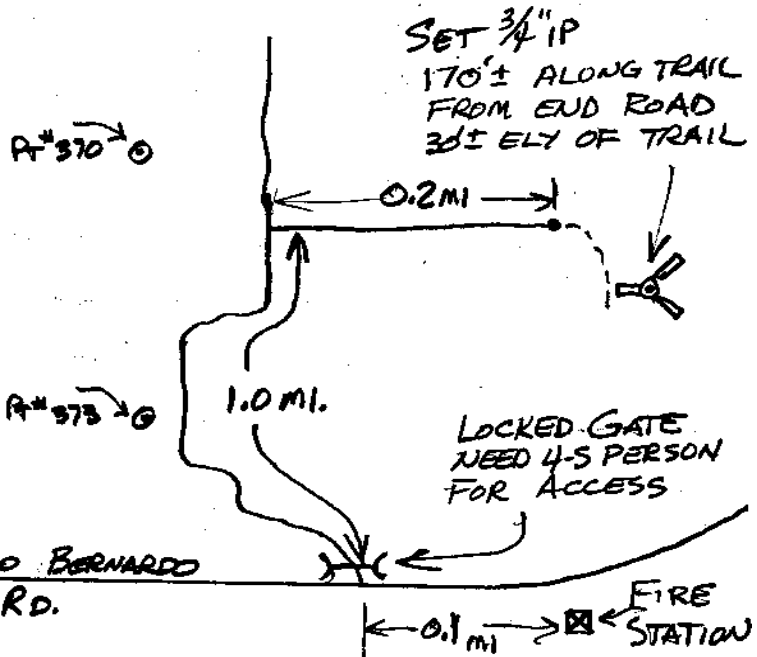 SET 3/4" IP
170'± ALONG TRAIL
FROM END ROAD
30'± ELY OF TRAIL
PT# 370
0.2 MI
PT# 373
1.0 MI.
LOCKED GATE
NEED 4-S PERSON
FOR ACCESS
O BERNARDO
RD.
0.1 MI
FIRE
STATION